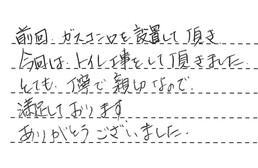 前回、ガスコンロを設置して頂き
今回は、トイレ工事をして頂きました
とても、丁寧で親切なので
満足しております
ありがとうございました。